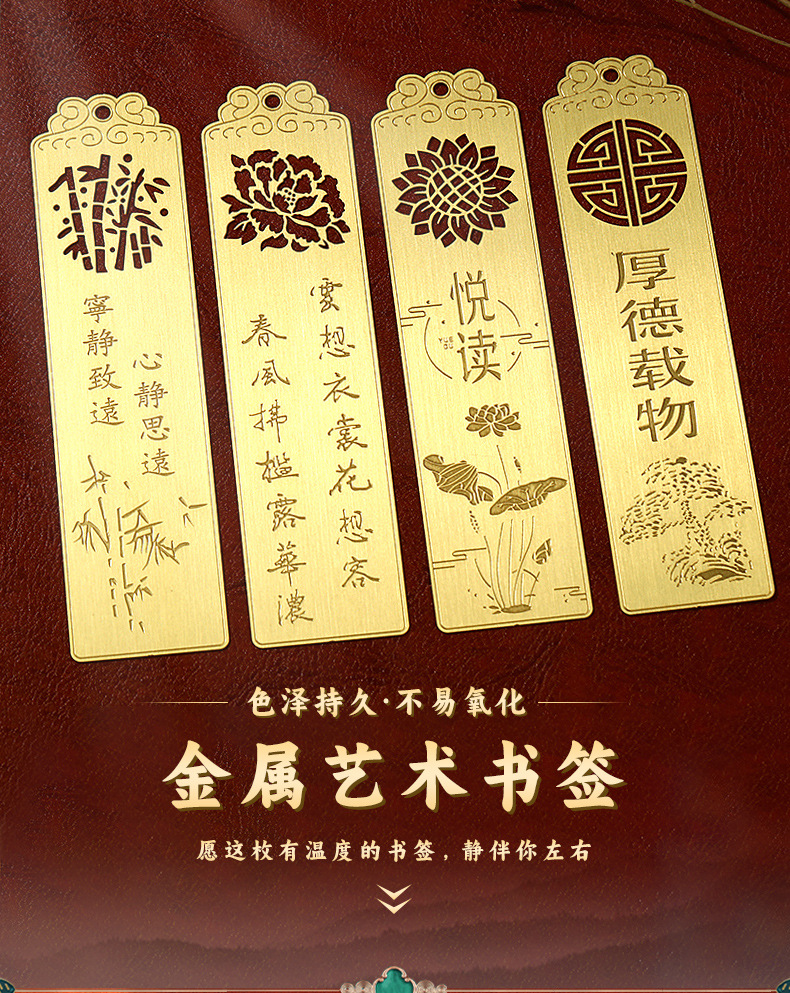 寧静致遠
心静思遠
雲想衣裳花想容
春風拂檻露華濃
悦读
YUE
DU
厚德载物
色泽持久·不易氧化
金属艺术书签
愿这枚有温度的书签，静伴你左右